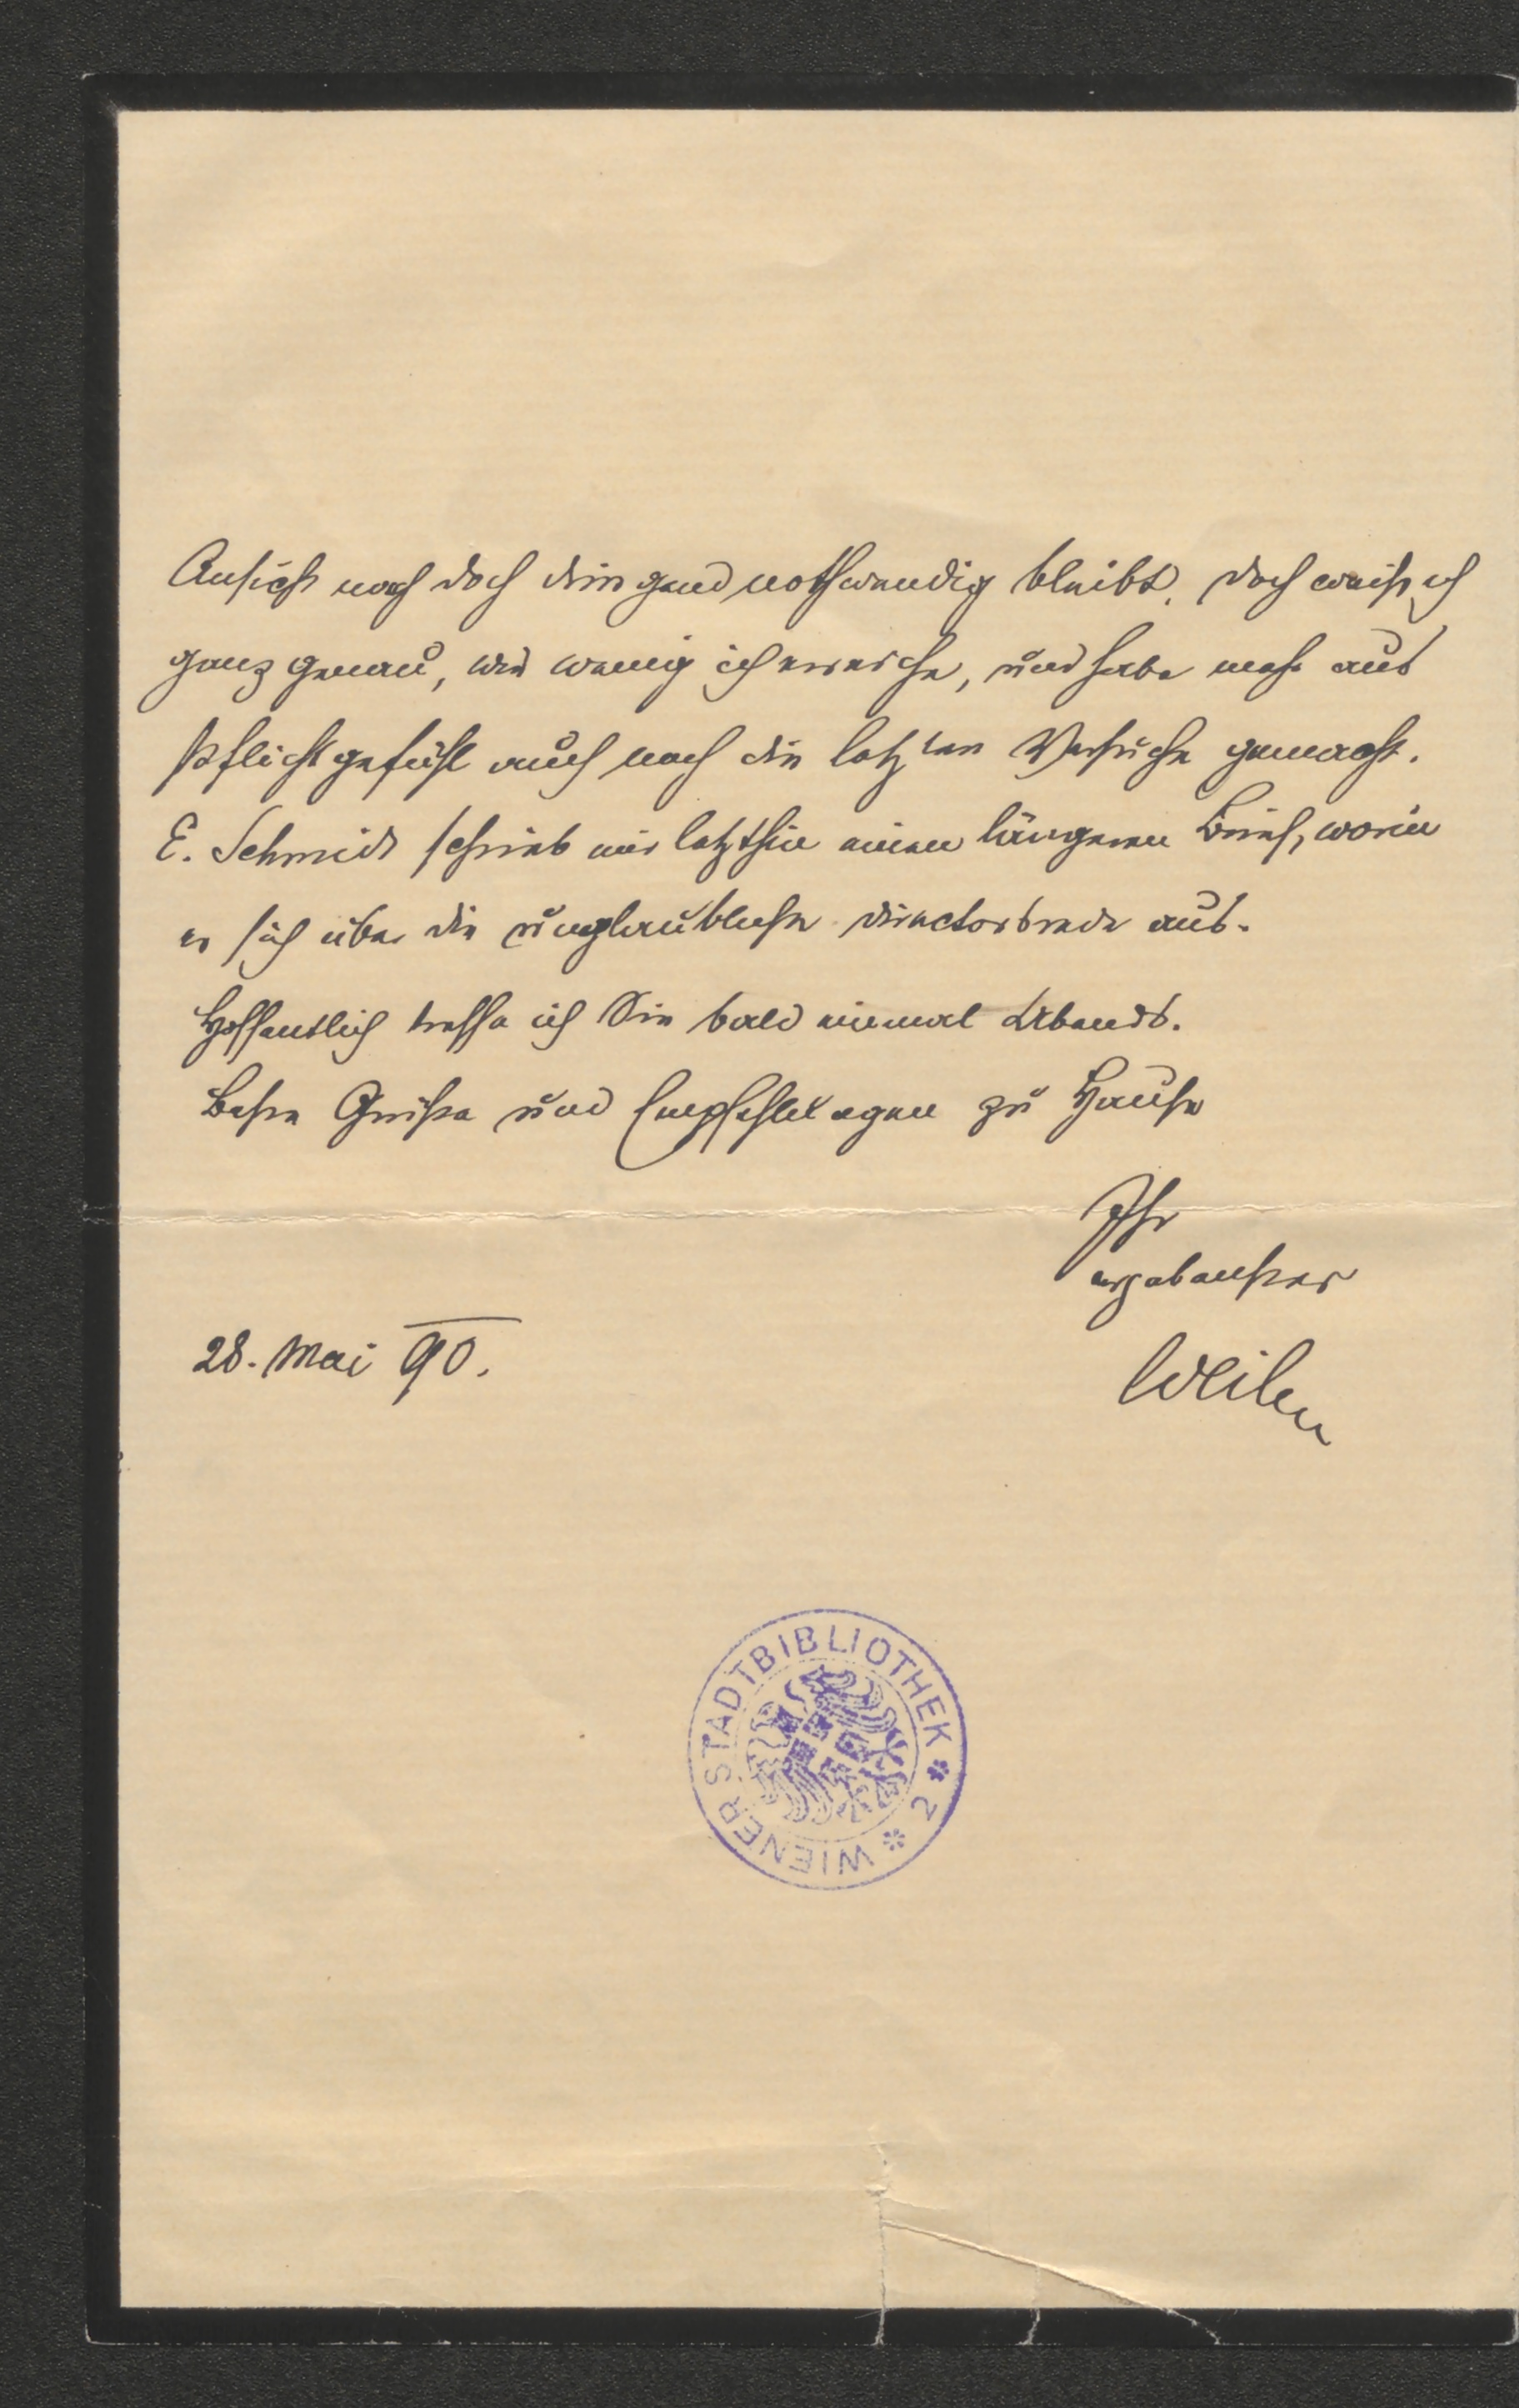 Ansicht nach doch dringend nothwendig bleibt. Doch weiß ich
ganz genau, wie wenig ich erreiche, und habe mehr aus
Pflichtgefühl auch noch die letzten Versuche gemacht.
E. Schmidt schrieb mir letzthin einen längeren Brief, worin
er sich über die unglaubliche Directorsrede aus-
Hoffentlich treffe ich Sie bald einmal Abends.
Beste Grüße und Empfehlungen zu Hause
Ihr
ergebenster
Weilen
28. Mai 90.
WIENER STADTBIBLIOTHEK * 2 *